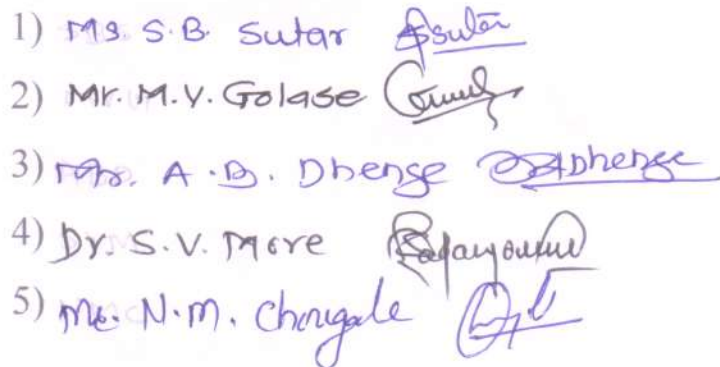 1) Ms. S.B. Sutar
2) Mr. M.V. Golase
3) Mr. A.B. Dhenge ADhenge
4) Dr. S.V. More
5) Mr. N.M. Chougale